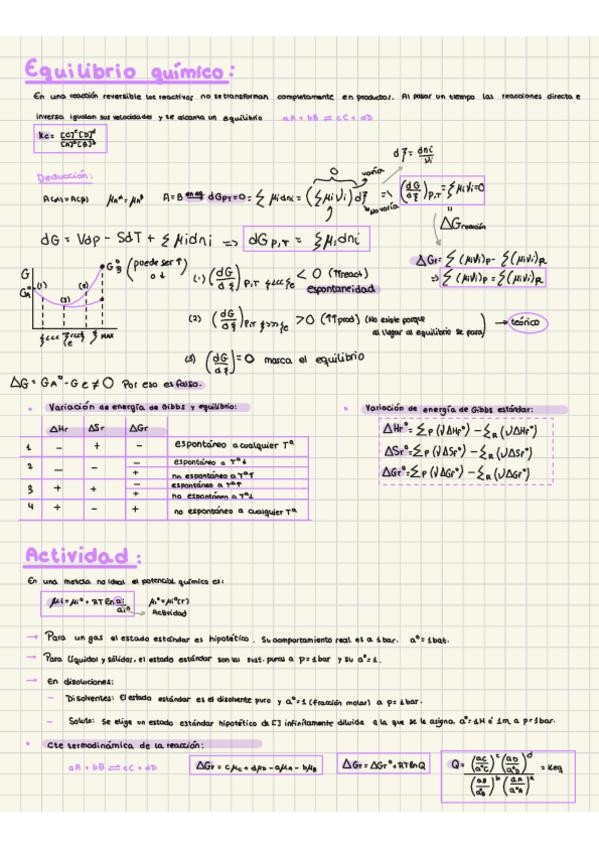 Equilibrio químico:
En una reacción reversible los reactivos no se transforman completamente en productos. Al pasar un tiempo las reacciones directa e
inversa igualan sus velocidades y se alcanza un equilibrio aA + bB ⇌ cC + dD
Kc = [C]ᶜ[D]ᵈ / [A]ᵃ[B]ᵇ
Deducción:
dξ = dni / νi
0 varía
A=B en eq dG P,T = 0 = Σ μi dni = (Σ μi νi) dξ => (dG/dξ) P,T = Σ μi νi = 0
No varía
ΔG reacción
dG = Vdp - SdT + Σ μi dni => dG P,T = Σ μi dni
ΔGr = Σ (μi νi)P - Σ (μi νi)R
=> Σ (μi νi)P = Σ (μi νi)R
G
(puede ser ↑
o ↓)
(1) (2) (3)
ξ MAX
(1) (dG/dξ) P,T ξ<<<ξe < 0 (↑↑react)
espontaneidad
(2) (dG/dξ) P,T ξ>>>ξe > 0 (↑↑prod) (No existe porque
al llegar al equilibrio se para) → teórico
(3) (dG/dξ) = 0 marca el equilibrio
ΔG = GA° - Ge ≠ 0 Por eso es falso.
• Variación de energía de Gibbs y equilibrio:
ΔHr ΔSr ΔGr
1 - + - espontáneo a cualquier Tª
2 - - - espontáneo a Tª↓
+ no espontáneo a Tª↑
3 + + - espontáneo a Tª↑
+ no espontáneo a Tª↓
4 + - + no espontáneo a cualquier Tª
• Variación de energía de Gibbs estándar:
ΔHr° = ΣP (νΔHf°) - ΣR (νΔHf°)
ΔSr° = ΣP (νΔSf°) - ΣR (νΔSf°)
ΔGr° = ΣP (νΔGf°) - ΣR (νΔGf°)
Actividad:
En una mezcla no ideal el potencial químico es:
μi = μi° + RT ln ai/ai° μi° = μi°(T)
Actividad
→ Para un gas el estado estándar es hipotético. Su comportamiento real es a 1bar. a° = 1bat.
→ Para líquidos y sólidos, el estado estándar son las sust. puras a p = 1bar y su a° = 1.
→ En disoluciones:
- Disolventes: El estado estándar es el disolvente puro y a° = 1 (fracción molar) a p = 1 bar.
- Soluto: Se elige un estado estándar hipotético de [ ] infinitamente diluida a la que se le asigna a° = 1M ó 1m a p = 1bar.
• Cte termodinámica de la reacción:
aA + bB ⇌ cC + dD
ΔGr = cμC + dμD - aμA - bμB
ΔGr = ΔGr° + RT ln Q
Q = (aC/a°C)ᶜ (aD/a°D)ᵈ / (aB/a°B)ᵇ (aA/a°A)ᵃ = Keq